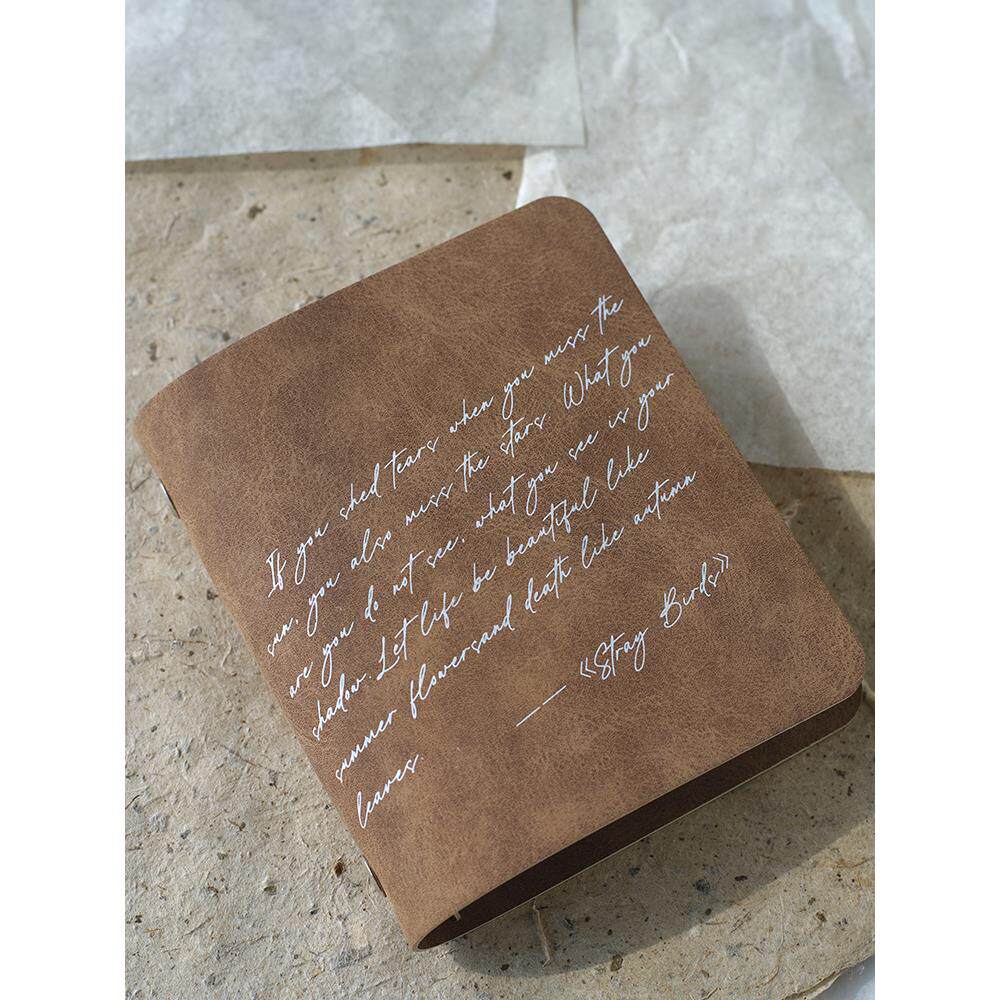 If you shed tears when you miss the
sun, you also miss the stars. What you
are you do not see, what you see is your
shadow. Let life be beautiful like
summer flowersand death like autumn
leaves.
—— «Stray Birds»